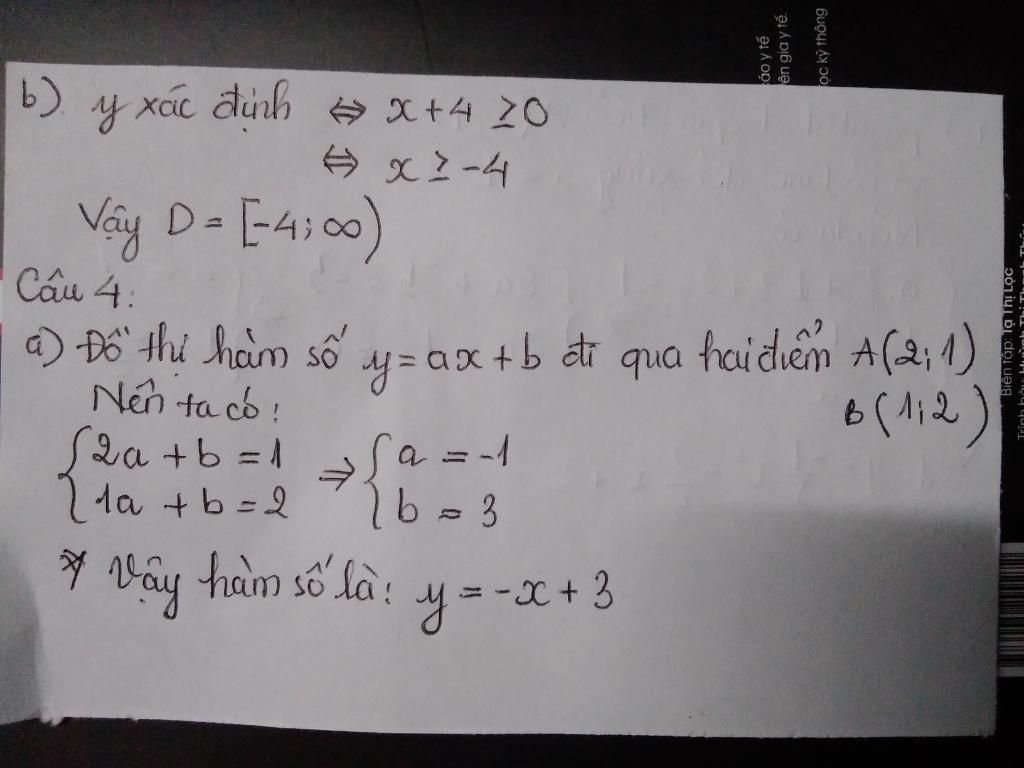 b) y xác định ⇔ x+4 ≥0
⇔ x ≥ -4
Vậy D = [-4; ∞)
Câu 4:
a) Đồ thị hàm số y=ax+b đi qua hai điểm A(2;1)
B(1;2)
Nên ta có:
{2a +b =1 ⇒ {a = -1
{1a +b =2 {b = 3
* Vậy hàm số là: y = -x + 3
áo y tế
ên gia y tế.
ọc kỳ thông
Biên tập: Tạ Thị Lọc